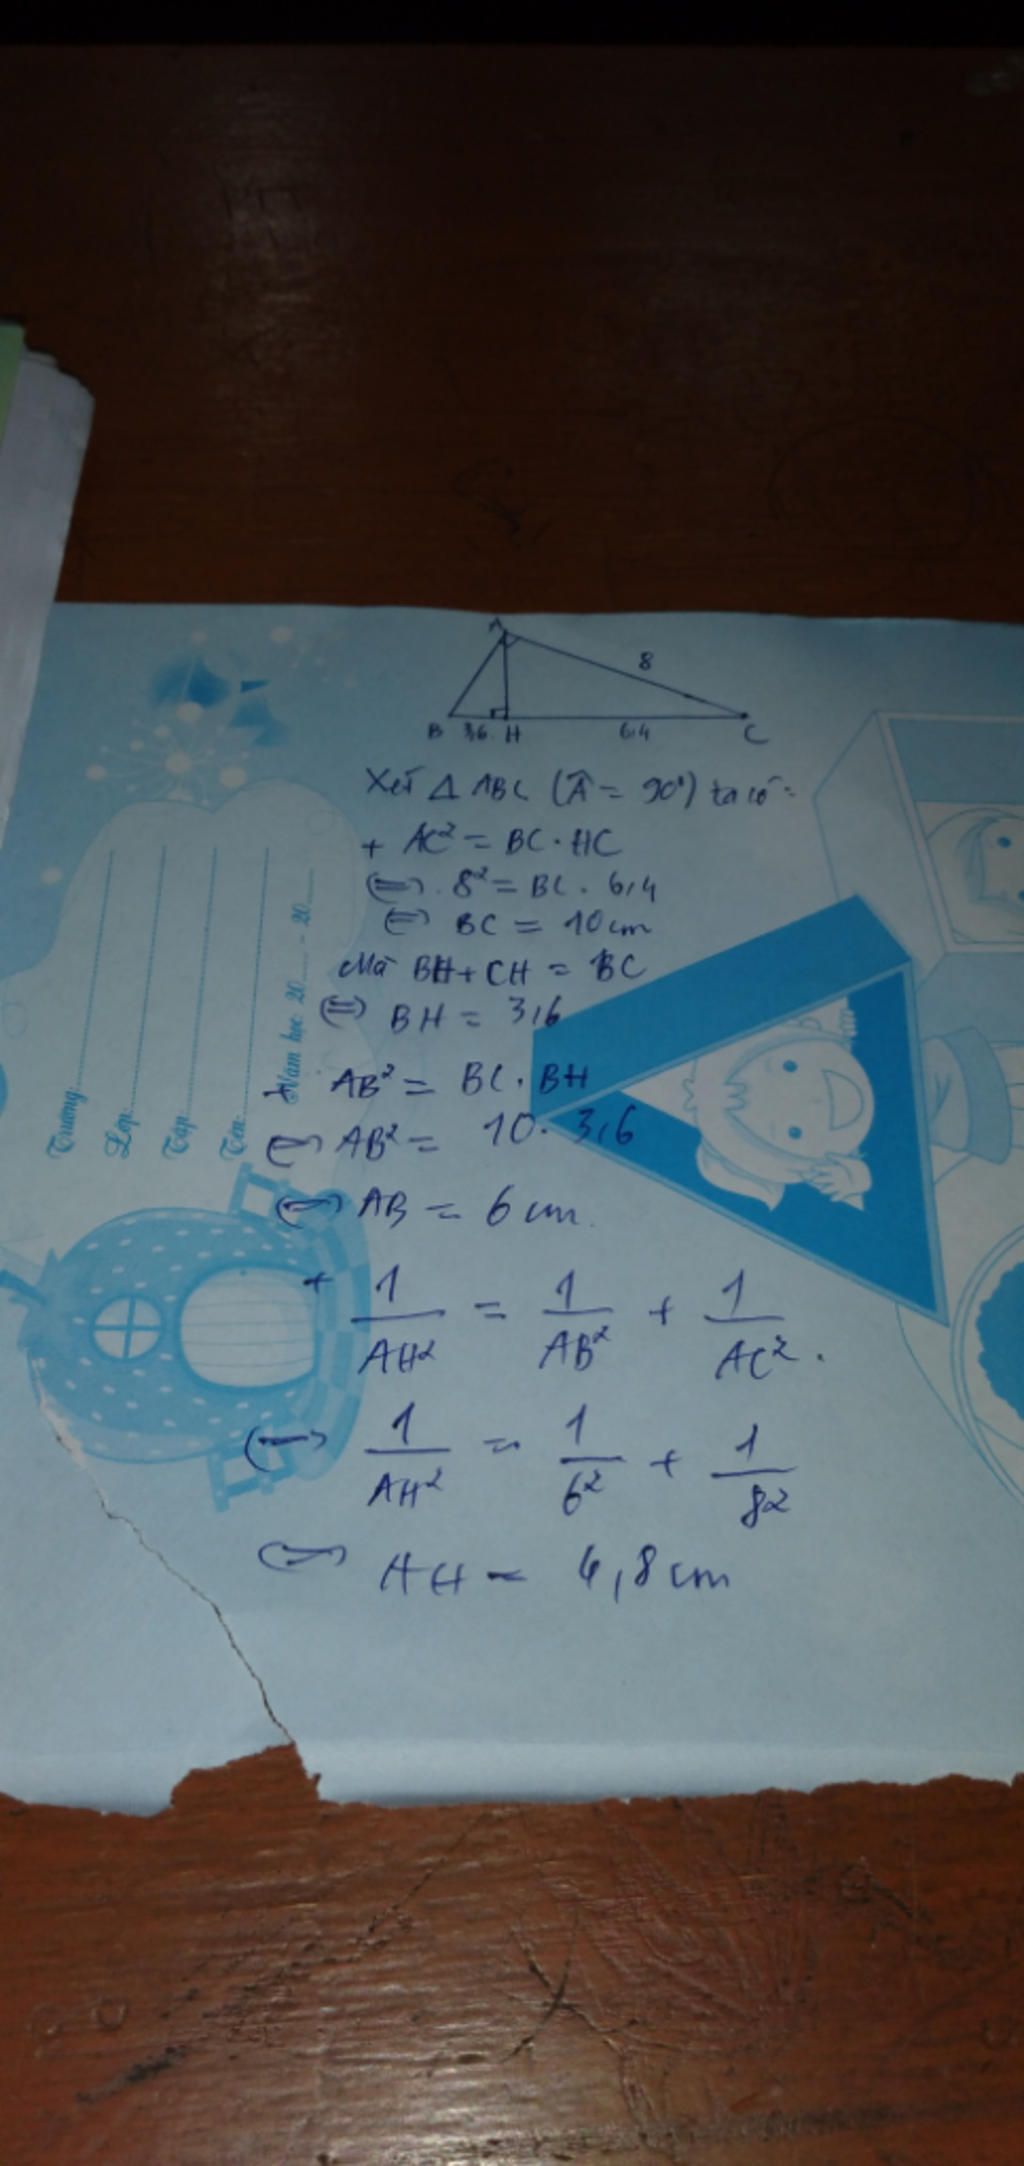 A
8
B 3,6 H 6,4 C
Xét Δ ABC (Â = 90°) ta có:
+ AC² = BC . HC
(=) 8² = BC . 6,4
(=) BC = 10 cm
Mà BH + CH = BC
(=) BH = 3,6
+ AB² = BC . BH
(=) AB² = 10 . 3,6
(=) AB = 6 cm.
+ 1/AH² = 1/AB² + 1/AC².
(=) 1/AH² = 1/6² + 1/8²
(=) AH = 4,8 cm
Trường:
Lớp:
Tập:
Tên:
Năm học: 20..... - 20.....